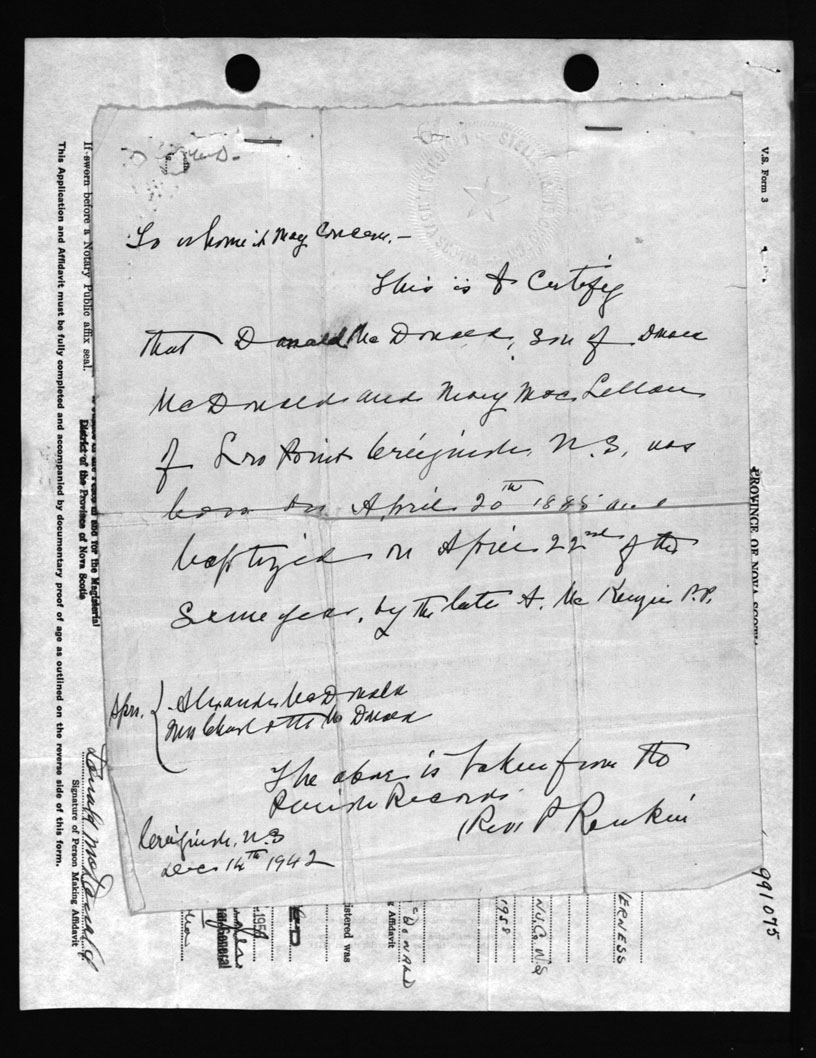 To whom it May Concern.—
This is to Certify
that Donald McDonald, Son of Donald
McDonald and Mary MacLellan
of Long Point Creignish, N.S. was
born on April 20th 1885 and
baptized on April 22nd of the
Same year, by the late A. McKenzie P.P.
Spn. { Alexander McDonald
Charlotte McDonald
The above is taken from the
Parish Records.
(Rev) P Rankin
Creignish, N.S
Dec 14th 1942
V.S. Form 3
PROVINCE OF NOVA SCOTIA
991075
If sworn before a Notary Public affix seal.
This Application and Affidavit must be fully completed and accompanied by documentary proof of age as outlined on the reverse side of this form.
in and for the Magisterial
District of the Province of Nova Scotia
Donald McDonald
Signature of Person Making Affidavit
ERNESS
N.S.
1958
DONALD
g Affidavit
istered was
ED
General